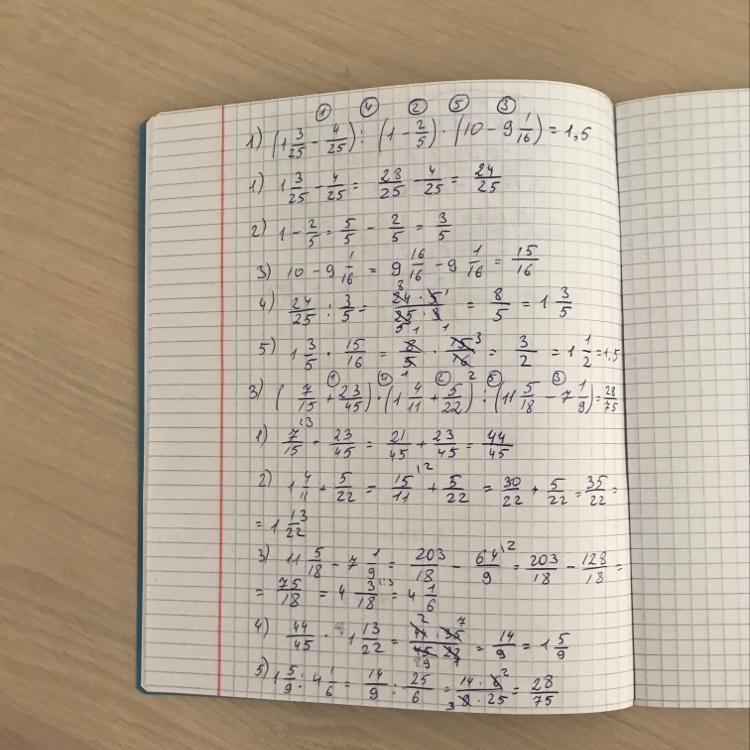 1) (1 3/25 - 4/25) : (1 - 2/5) · (10 - 9 1/16) = 1,5
1) 1 3/25 - 4/25 = 28/25 - 4/25 = 24/25
2) 1 - 2/5 = 5/5 - 2/5 = 3/5
3) 10 - 9 1/16 = 9 16/16 - 9 1/16 = 15/16
4) 24/25 : 3/5 = 24 · 5/25 · 3 = 8/5 = 1 3/5
5) 1 3/5 · 15/16 = 8/5 · 15/16 = 3/2 = 1 1/2 = 1,5
3) (7/15 + 23/45) · (1 4/11 + 5/22) : (11 5/18 - 7 1/9) = 28/75
1) 7/15 + 23/45 = 21/45 + 23/45 = 44/45
2) 1 4/11 + 5/22 = 15/11 + 5/22 = 30/22 + 5/22 = 35/22 =
= 1 13/22
3) 11 5/18 - 7 1/9 = 203/18 - 64/9 = 203/18 - 128/18 =
= 75/18 = 4 3/18 = 4 1/6
4) 44/45 · 1 13/22 = 44 · 35/45 · 22 = 14/9 = 1 5/9
5) 1 5/9 : 4 1/6 = 14/9 : 25/6 = 14 · 6/9 · 25 = 28/75